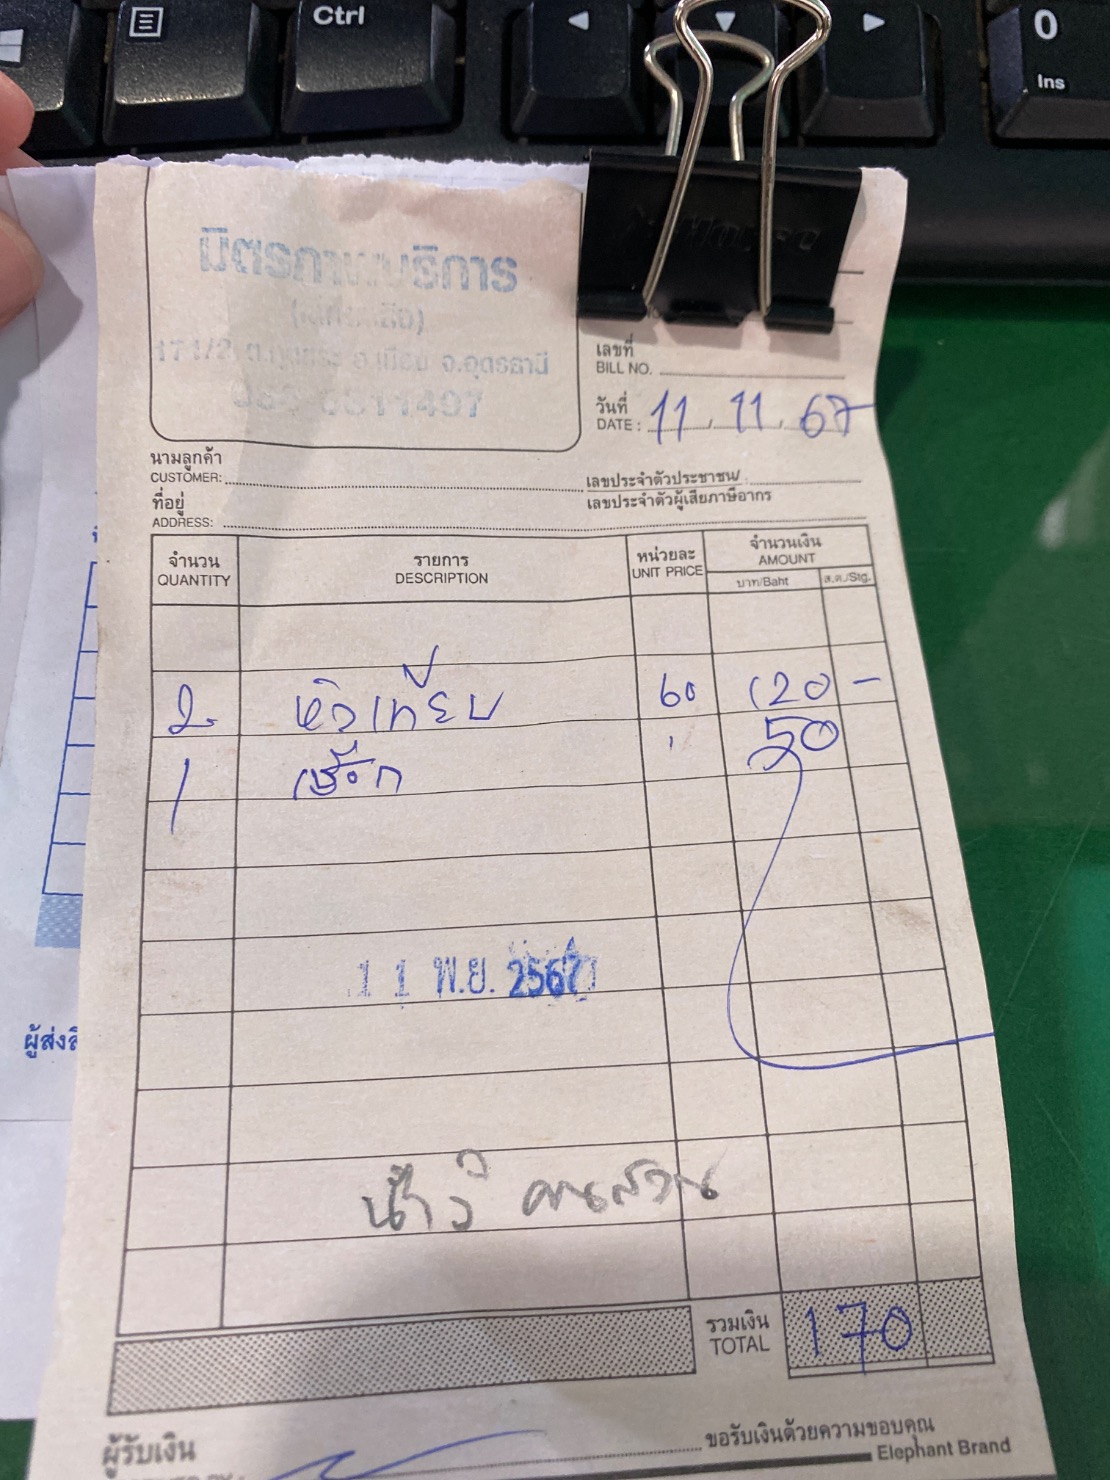 Ctrl
0
Ins
มิตรภาพบริการ
171/2
อ.เมือง จ.อุดรธานี
เลขที่
BILL NO.
วันที่
DATE : 11 . 11 . 67
นามลูกค้า
CUSTOMER:
เลขประจำตัวประชาชน/
เลขประจำตัวผู้เสียภาษีอากร
ที่อยู่
ADDRESS:
จำนวน รายการ หน่วยละ จำนวนเงิน
QUANTITY DESCRIPTION UNIT PRICE AMOUNT
บาท/Baht ส.ต./Stg.
2 หัวเทียน 60 120 –
1 50
11 พ.ย. 2567
คนสวน
รวมเงิน
TOTAL 170
ผู้ส่งสิ
ผู้รับเงิน
ขอรับเงินด้วยความขอบคุณ
Elephant Brand